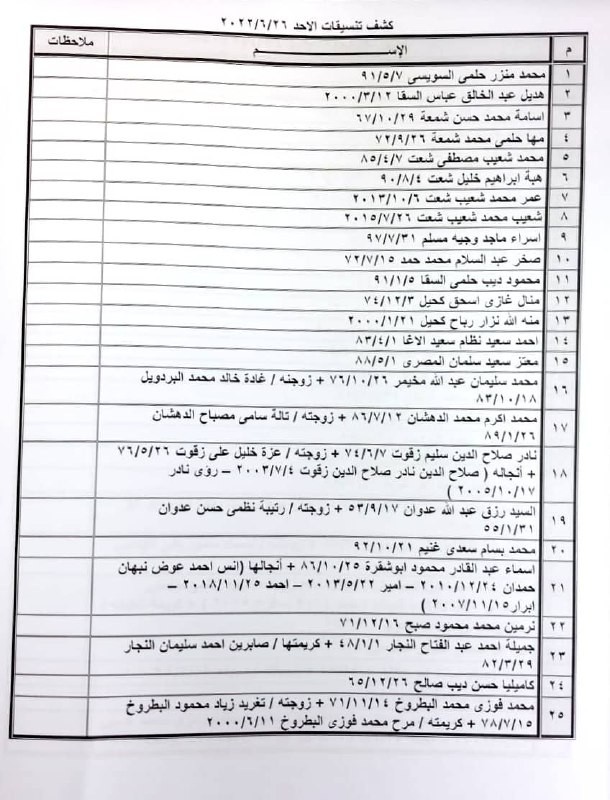 كشف تنسيقات الاحد ٢٠٢٢/٦/٢٦
م الإســـــــم ملاحظات
١ محمد منزر حلمى السويسى ٩١/٥/٧
٢ هديل عبد الخالق عباس السقا ٢٠٠٠/٣/١٢
٣ اسامة محمد حسن شمعة ٦٧/١٠/٢٩
٤ مها حلمى محمد شمعة ٧٢/٩/٢٦
٥ محمد شعيب مصطفى شعت ٨٥/٤/٧
٦ هبة ابراهيم خليل شعت ٩٠/٨/٤
٧ عمر محمد شعيب شعت ٢٠١٣/١٠/٦
٨ شعيب محمد شعيب شعت ٢٠١٥/٧/٢٦
٩ اسراء ماجد وجيه مسلم ٩٧/٧/٣١
١٠ صخر عبد السلام محمد حمد ٧٢/٧/١٥
١١ محمود ديب حلمى السقا ٩١/١/٥
١٢ منال غازى اسحق كحيل ٧٤/١٢/٣
١٣ منه الله نزار رباح كحيل ٢٠٠٠/١/٢١
١٤ احمد سعيد نظام سعيد الاغا ٨٣/٤/١
١٥ معتز سعيد سلمان المصرى ٨٨/٥/١
١٦ محمد سليمان عبد الله مخيمر ٧٦/١٠/٢٦ + زوجته / غادة خالد محمد البردويل
٨٣/١٠/١٨
١٧ محمد اكرم محمد الدهشان ٨٦/٧/١٢ + زوجته / تالة سامى مصباح الدهشان
٨٩/١/٢٦
١٨ نادر صلاح الدين سليم زقوت ٧٤/٦/٧ + زوجته / عزة خليل على زقوت ٧٦/٥/٢٦
+ أنجاله ( صلاح الدين نادر صلاح الدين زقوت ٢٠٠٣/٧/٤ – رؤى نادر
٢٠٠٥/١٠/١٧ )
١٩ السيد رزق عبد الله عدوان ٥٣/٩/١٧ + زوجته / رتيبة نظمى حسن عدوان
٥٥/١/٣١
٢٠ محمد بسام سعدى غنيم ٩٢/١٠/٢١
٢١ اسماء عبد القادر محمود ابوشقرة ٨٦/١٠/٢٥ + أنجالها (انس احمد عوض نبهان
حمدان ٢٠١٠/١٢/٢٤ – امير ٢٠١٣/٥/٢٢ – احمد ٢٠١٨/١١/٢٥ –
ابرار٢٠٠٧/١١/١٥ )
٢٢ نرمين محمد محمود صبح ٧١/١٢/١٦
٢٣ جميلة احمد عبد الفتاح النجار ٤٨/١/١ + كريمتها / صابرين احمد سليمان النجار
٨٢/٣/٢٩
٢٤ كاميليا حسن ديب صالح ٦٥/١٢/٢٦
٢٥ محمد فوزى محمد البطروخ ٧١/١١/١٤ + زوجته / تغريد زياد محمود البطروخ
٧٨/٧/١٥ + كريمته / مرح محمد فوزى البطروخ ٢٠٠٠/٦/١١